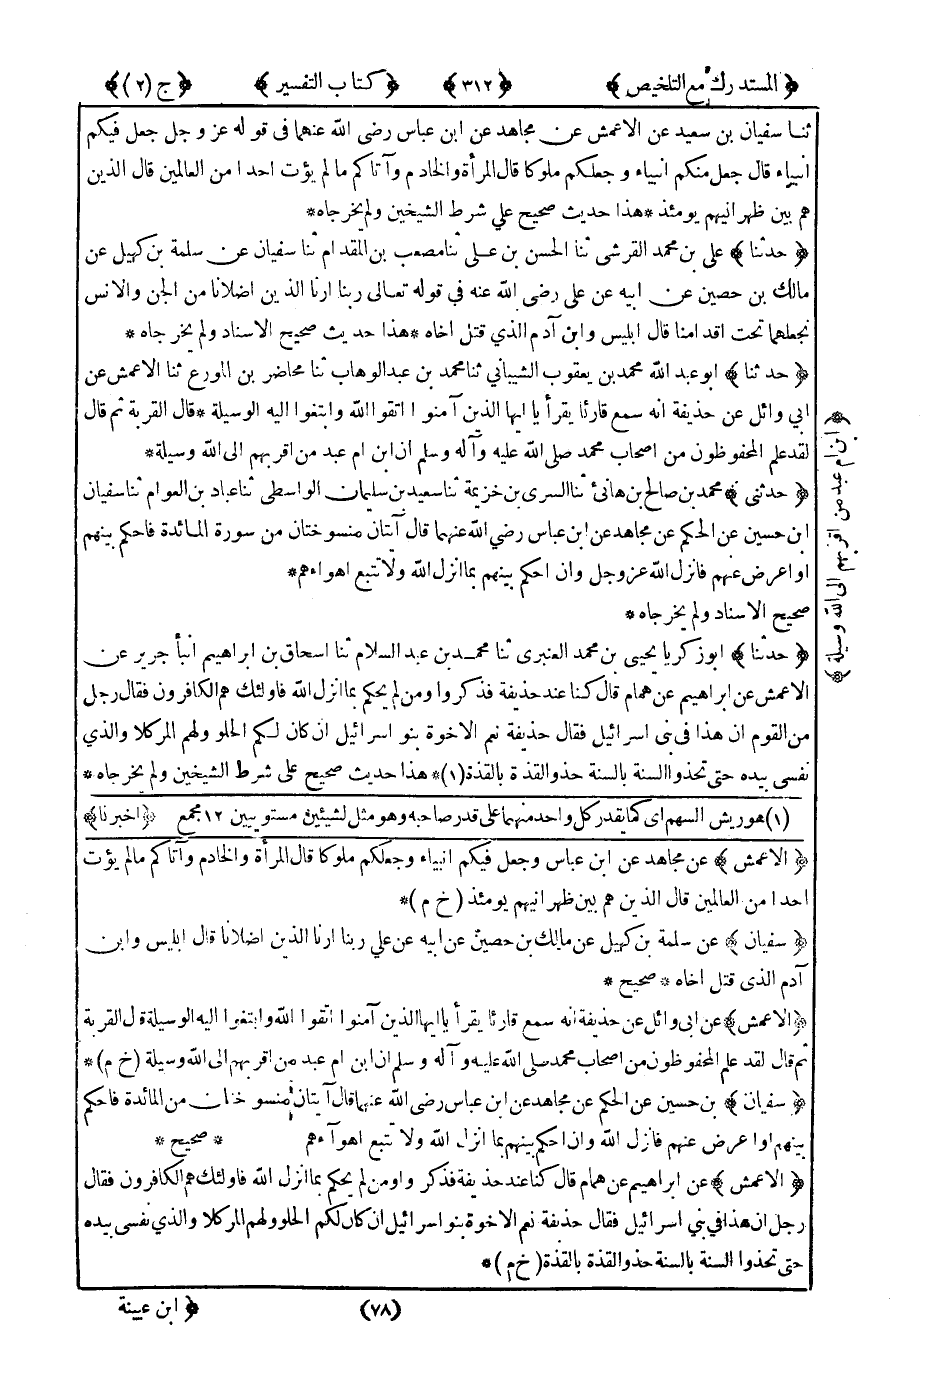 ﴿ المستدرك مع التلخيص ﴾ ﴿ ٣١٢ ﴾ ﴿ كتاب التفسير ﴾ ﴿ ج (٢) ﴾
ثنا سفيان بن سعيد عن الاعمش عن مجاهد عن ابن عباس رضى الله عنهما فى قوله عز وجل جعل فيكم
انبياء قال جعل منكم انبياء وجعلكم ملوكا قال المرأة والخادم وآتاكم مالم يؤت احدا من العالمين قال الذين
هم بين ظهرانيهم يومئذ *هذا حديث صحيح على شرط الشيخين ولم يخرجاه*
﴿ حدثنا ﴾ على بن محمد القرشى ثنا الحسن بن على ثنا مصعب بن المقدام ثنا سفيان عن سلمة بن كهيل عن
مالك بن حصين عن ابيه عن على رضى الله عنه فى قوله تعالى ربنا ارنا الذين اضلانا من الجن والانس
نجعلهما تحت اقدامنا قال ابليس وابن آدم الذي قتل اخاه *هذا حديث صحيح الاسناد ولم يخرجاه *
﴿ حدثنا ﴾ ابو عبد الله محمد بن يعقوب الشيبانى ثنا محمد بن عبدالوهاب ثنا محاضر بن المورع ثنا الاعمش عن
ابى وائل عن حذيفة انه سمع قارئا يقرأ يا ايها الذين آمنوا اتقوا الله وابتغوا اليه الوسيلة *قال القربة ثم قال
لقد علم المحفوظون من اصحاب محمد صلى الله عليه وآله وسلم ان ابن ام عبد من اقربهم الى الله وسيلة*
﴿ ابن ام عبد من اقربهم الى الله وسيلة ﴾
﴿ حدثنى ﴾ محمد بن صالح بن هانئ ثنا السرى بن خزيمة ثنا سعيد بن سليمان الواسطى ثنا عباد بن العوام ثنا سفيان
ابن حسين عن الحكم عن مجاهد عن ابن عباس رضى الله عنهما قال آيتان منسوختان من سورة المائدة فاحكم بينهم
او اعرض عنهم فانزل الله عز وجل وان احكم بينهم بما انزل الله ولا تتبع اهواءهم*
صحيح الاسناد ولم يخرجاه *
﴿ حدثنا ﴾ ابو زكريا يحيى بن محمد العنبرى ثنا محمد بن عبد السلام ثنا اسحاق بن ابراهيم انبأ جرير عن
الاعمش عن ابراهيم عن همام قال كنا عند حذيفة فذكروا ومن لم يحكم بما انزل الله فاولئك هم الكافرون فقال رجل
من القوم ان هذا فى بنى اسرائيل فقال حذيفة نعم الاخوة بنو اسرائيل ان كان لكم الحلو ولهم المر كلا والذي
نفسى بيده حتى تحذوا السنة بالسنة حذو القذة بالقذة (١)* هذا حديث صحيح على شرط الشيخين ولم يخرجاه *
(١) هوريش السهم اى كما يقدر كل واحد منهما على قدر صاحبه وهو مثل لشيئين مستويين ١٢ مجمع ﴿ اخبرنا ﴾
﴿ الاعمش ﴾ عن مجاهد عن ابن عباس وجعل فيكم انبياء وجعلكم ملوكا قال المرأة والخادم وآتاكم مالم يؤت
احدا من العالمين قال الذين هم بين ظهرانيهم يومئذ ( خ م )*
﴿ سفيان ﴾ عن سلمة بن كهيل عن مالك بن حصين عن ابيه عن على ربنا ارنا الذين اضلانا قال ابليس وابن
آدم الذى قتل اخاه * صحيح *
﴿ الاعمش ﴾ عن ابى وائل عن حذيفة انه سمع قارئا يقرأ ياايها الذين آمنوا اتقوا الله وابتغوا اليه الوسيلة قال القربة
ثم قال لقد علم المحفوظون من اصحاب محمد صلى الله عليه وآله وسلم ان ابن ام عبد من اقربهم الى الله وسيلة (خ م)*
﴿ سفيان ﴾ بن حسين عن الحكم عن مجاهد عن ابن عباس رضى الله عنهما قال آيتان منسوختان من المائدة فاحكم
بينهم او اعرض عنهم فانزل الله وان احكم بينهم بما انزل الله ولا تتبع اهوآءهم * صحيح *
﴿ الاعمش ﴾ عن ابراهيم عن همام قال كنا عند حذيفة فذكروا ومن لم يحكم بما انزل الله فاولئك هم الكافرون فقال
رجل ان هذا فى بني اسرائيل فقال حذيفة نعم الاخوة بنو اسرائيل ان كان لكم الحلو ولهم المر كلا والذي نفسى بيده
حتى تحذوا السنة بالسنة حذو القذة بالقذة ( خ م )*
(٧٨) ﴿ ابن عيينة